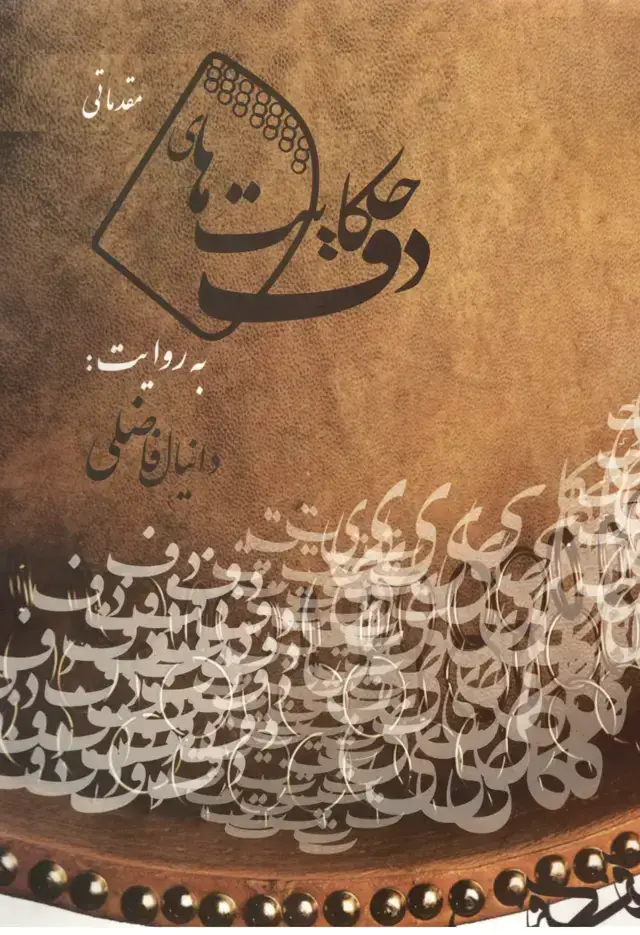 مقدماتی
حکایت های
دف
به روایت:
دانیال فاضلی